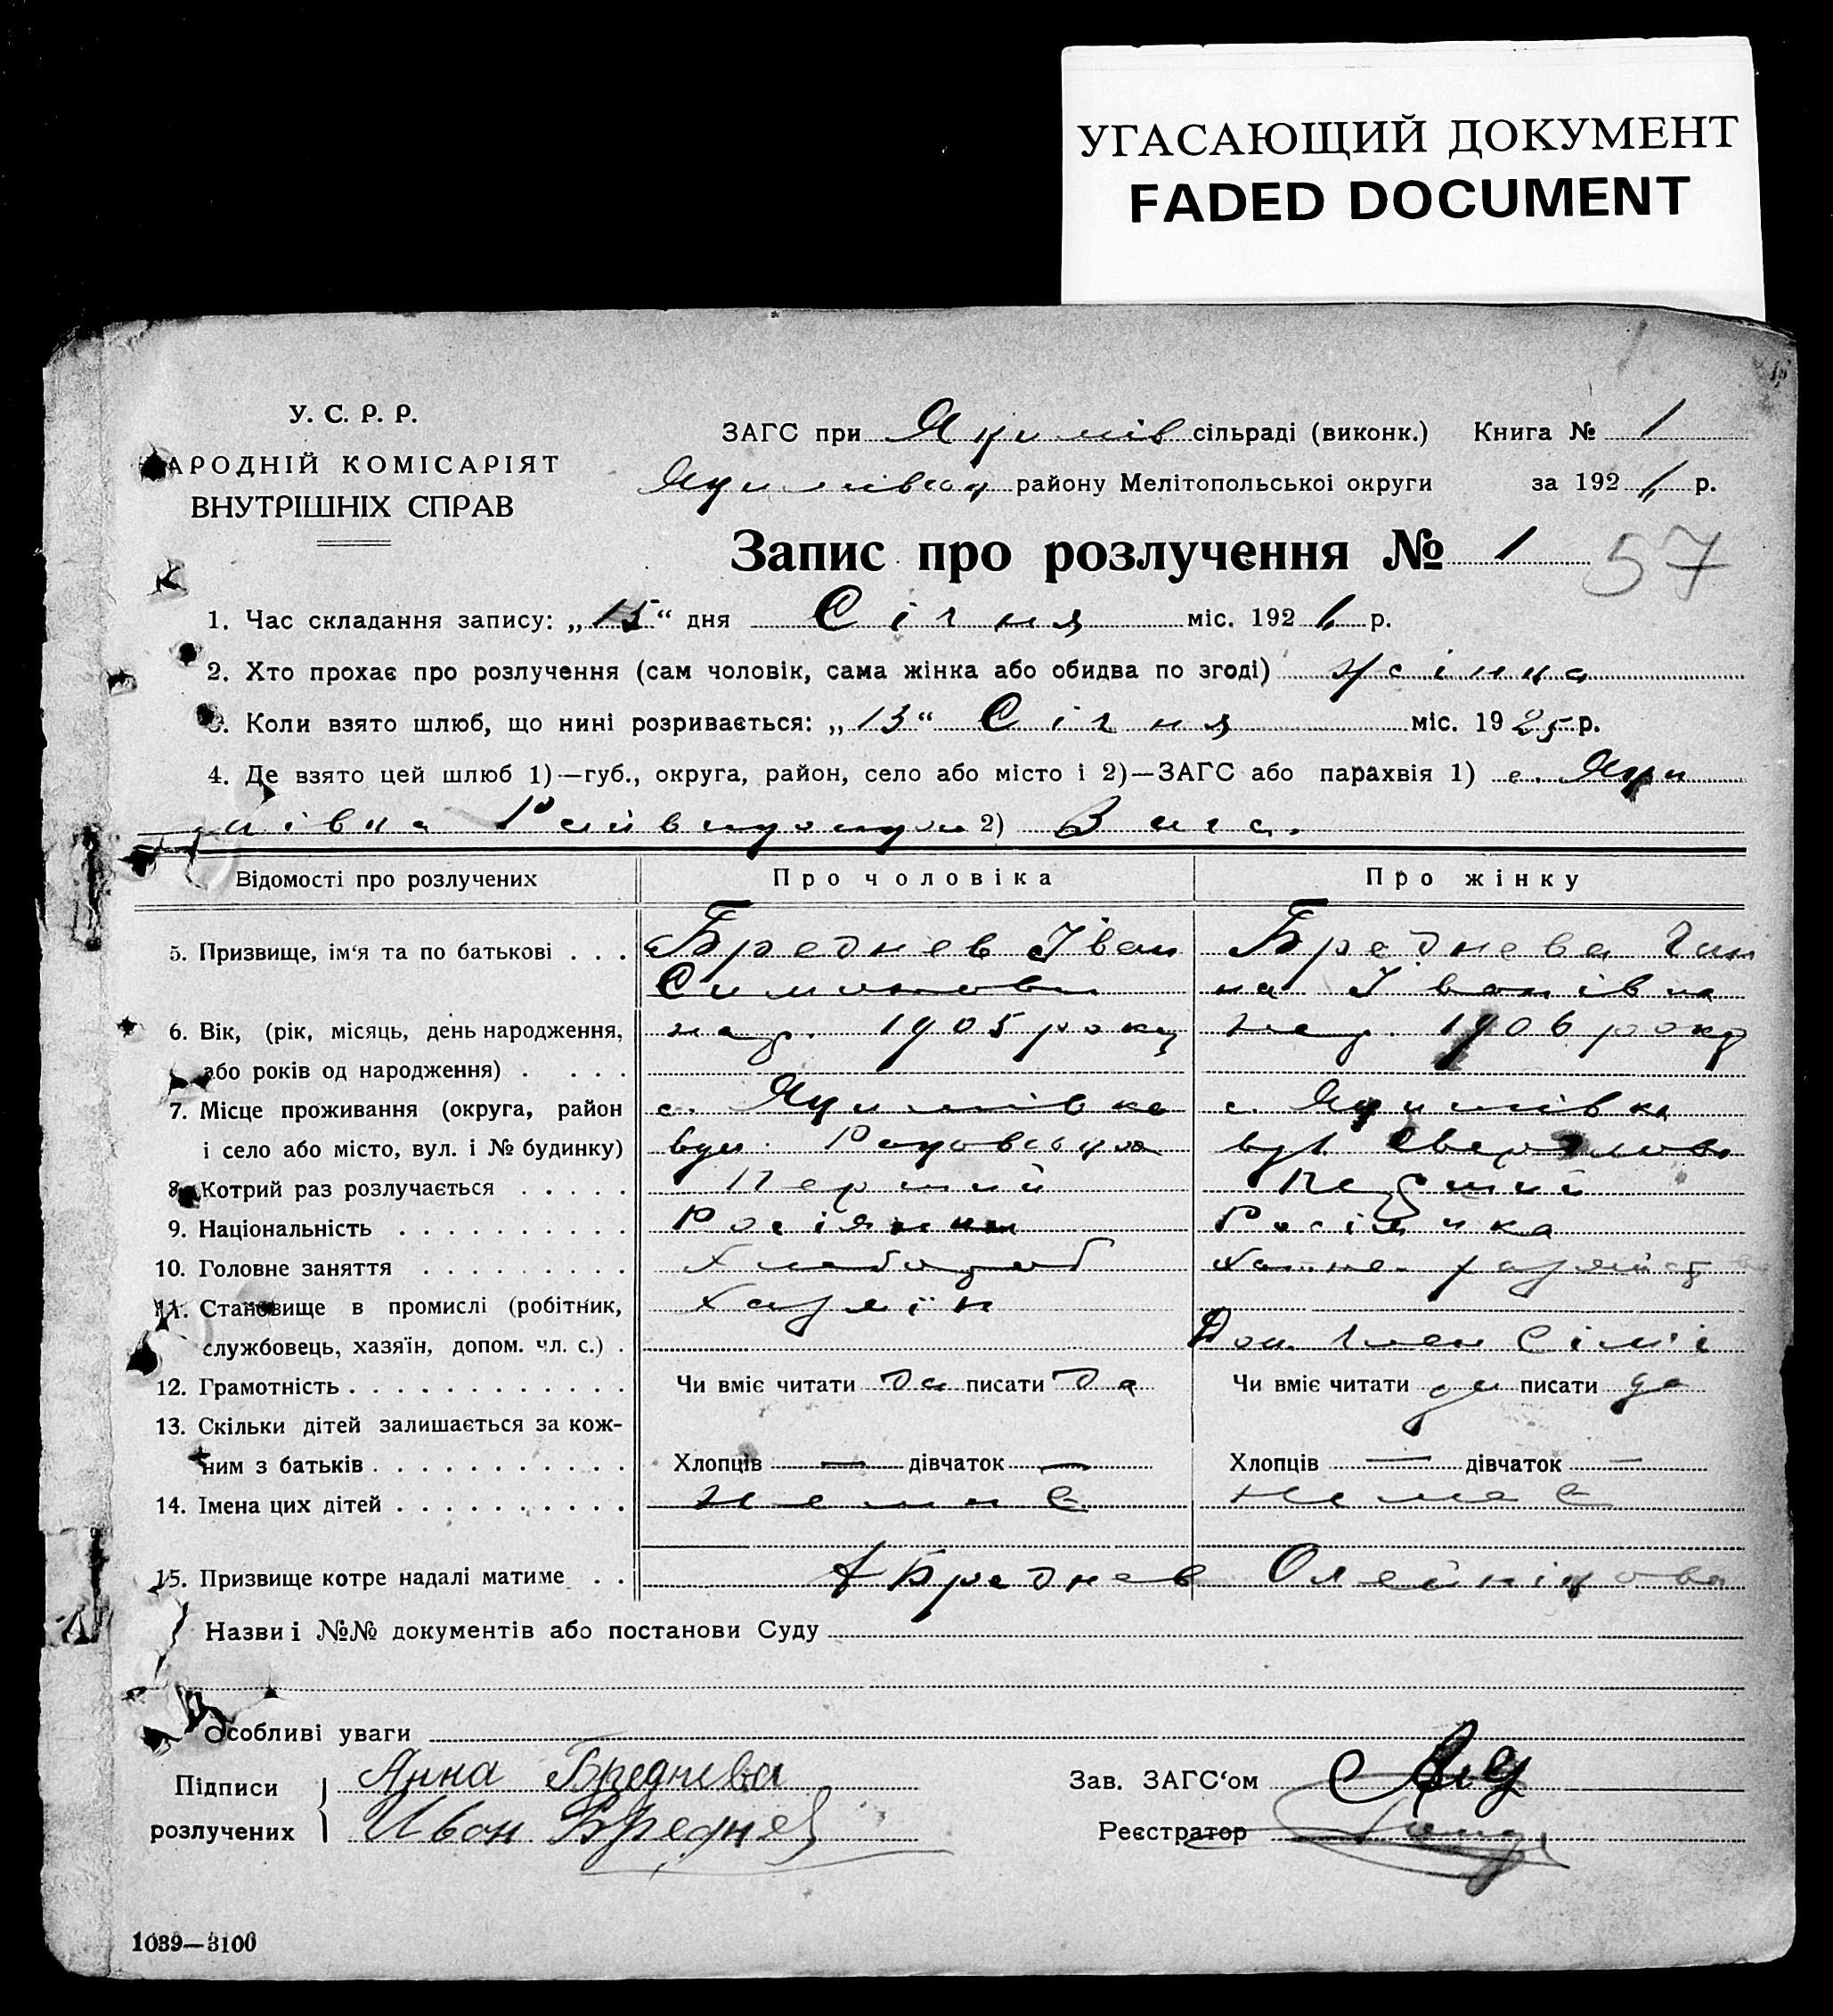 УГАСАЮЩИЙ ДОКУМЕНТ
FADED DOCUMENT
У. С. Р. Р.
АРОДНІЙ КОМІСАРІЯТ
ВНУТРІШНІХ СПРАВ
ЗАГС при Якимів сільраді (виконк.) Книга № 1
району Мелітопольської округи за 1926 р.
Запис про розлучення № 1 57
1. Час складання запису: „15“ дня Січня міс. 1926 р.
2. Хто прохає про розлучення (сам чоловік, сама жінка або обидва по згоді) жінка
3. Коли взято шлюб, що нині розривається: „13“ Січня міс. 1925 р.
4. Де взято цей шлюб 1)—губ., округа, район, село або місто і 2)—ЗАГС або парахвія 1) с. Яки
мівка 2) Загс.
Відомості про розлучених Про чоловіка Про жінку
5. Призвище, ім‘я та по батькові . . . Бреднев Іван Бреднева Ган
Симонови на Іванівна
6. Вік, (рік, місяць, день народження, нар. 1905 року нар. 1906 року
або років од народження) . . . . .
7. Місце проживання (округа, район с. Якимівка с. Якимівка
і село або місто, вул. і № будинку) вул.  вул Свердлова
8. Котрий раз розлучається . . . . . Перший Перший
9. Національність . . . . . . . . . . Росіянин Росіянка
10. Головне заняття . . . . . . . . . Хлебороб Хатне
11. Становище в промислі (робітник, Хазяїн
службовець, хазяїн, допом. чл. с.) . Доп. член Сім'і
12. Грамотність . . . . . . . . . . . . Чи вміє читати да писати да Чи вміє читати да писати да
13. Скільки дітей залишається за кож-
ним з батьків . . . . . . . . . . . Хлопців — дівчаток — Хлопців — дівчаток —
14. Імена цих дітей . . . . . . . . . . Немає Немає
15. Призвище котре надалі матиме . . Бреднев Олейнікова
Назви і №№ документів або постанови Суду
Особливі уваги
Підписи Анна Бреднева Зав. ЗАГС‘ом
розлучених Иван Бреднев Реєстратор
1039—3100